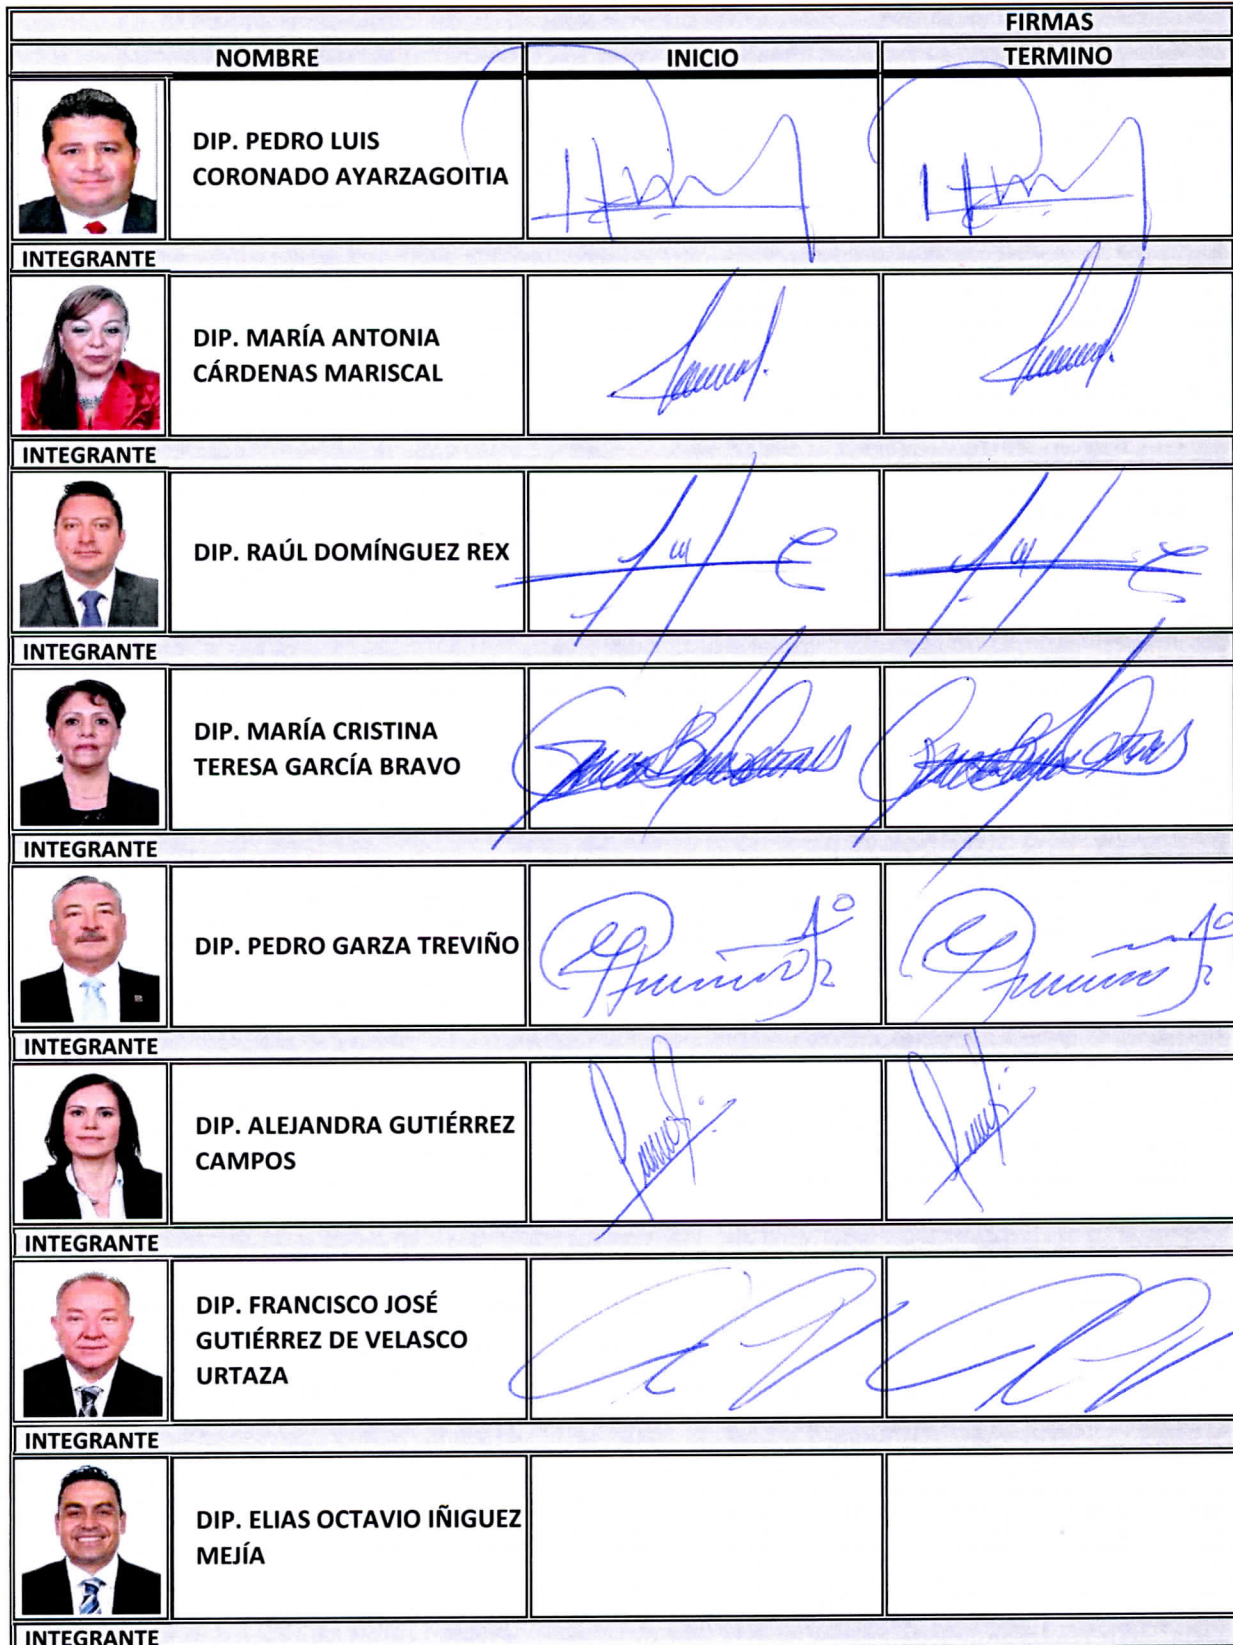 FIRMAS
NOMBRE INICIO TERMINO
DIP. PEDRO LUIS
CORONADO AYARZAGOITIA
INTEGRANTE
DIP. MARÍA ANTONIA
CÁRDENAS MARISCAL
INTEGRANTE
DIP. RAÚL DOMÍNGUEZ REX
INTEGRANTE
DIP. MARÍA CRISTINA
TERESA GARCÍA BRAVO
INTEGRANTE
DIP. PEDRO GARZA TREVIÑO
INTEGRANTE
DIP. ALEJANDRA GUTIÉRREZ
CAMPOS
INTEGRANTE
DIP. FRANCISCO JOSÉ
GUTIÉRREZ DE VELASCO
URTAZA
INTEGRANTE
DIP. ELIAS OCTAVIO IÑIGUEZ
MEJÍA
INTEGRANTE